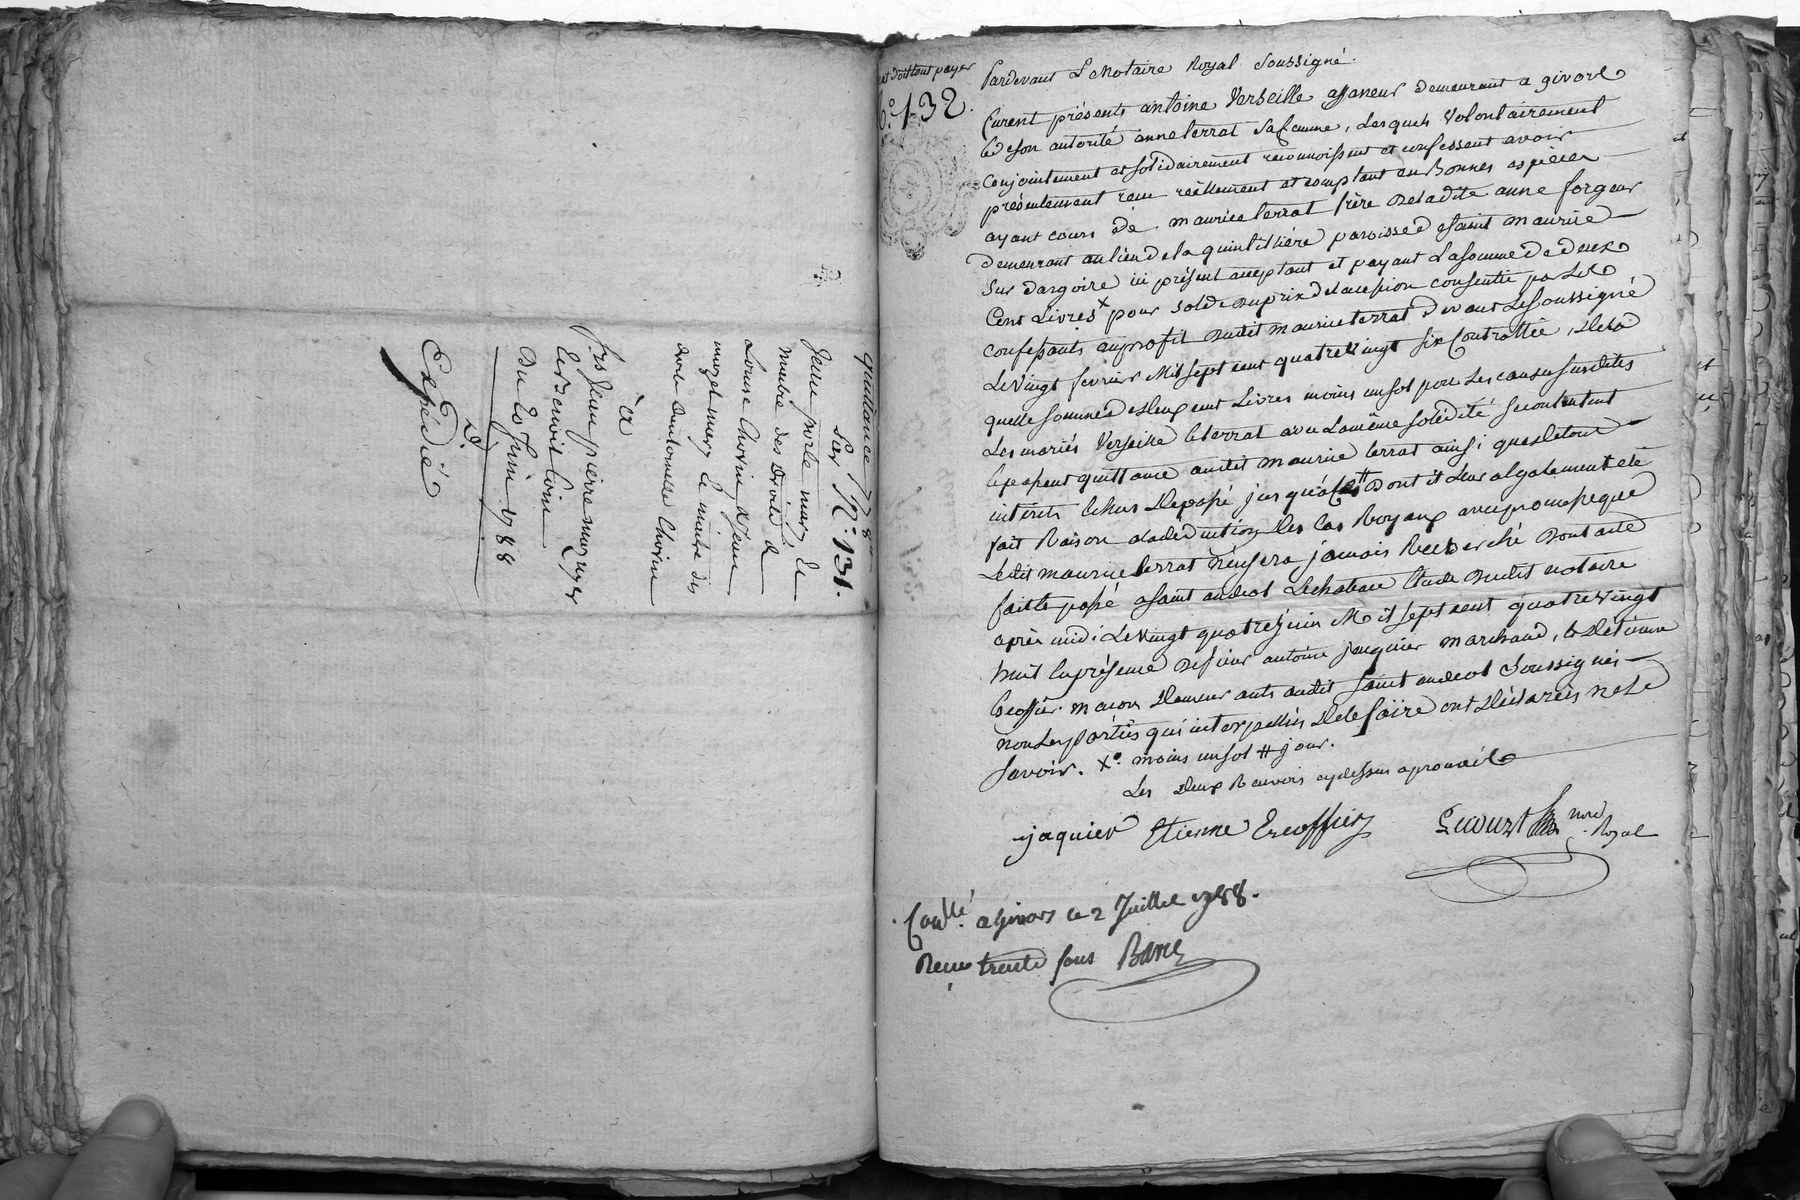 quittance 78ll
Par N.° 131.
Jeune porte marz le
maitre des droits de
Louise Chovin & Jeune
mozet marz le maitre des
droits D'antoinette Chovin
à
Srs Jean pierre marz nyer
et Benoit Coine
Du 20 Juin 1788
D.
Expédié
et doittout payer
6.° 132.
Pardevant Le Notaire Royal Soussigné.
furent présents antoine Verseille affaneur demeurant a givors
& de son autorité anne terrat sa femme, Lesquels Volontairement
Conjointement et solidairement reconnoissent et confessent avoir
présentement reçu reèllement et comptant en Bonnes espèces
ayant cours de maurice terrat frère de ladite anne forgeur
demeurant au lieu de la quintillière paroisse de saint maurice
Sur dargoire ici présent acceptant et payant La somme de deux
Cent Livres x pour solde du prix de la cession consentie par Les
confessants au profit dudit maurice terrat devant Le soussigné
Le Vingt fevrier Mil sept cent quatre Vingt six Controllée, de la
quelle somme de deux cent Livres moins un sol pour Les causes susdites
Les mariés Verseille & terrat avec La même solidité se contentent
& passent quittance audit maurice terrat ainsi que de tout
intérets échus de passé jusqu'à ce # dont il Leur a également été
fait Raison a la déduction des Cas Royaux avec promesse que
Ledit maurice terrat n'en sera jamais Recherché dont acte
fait & passé a saint andeol Le chateau Etude dudit notaire
après midi Le Vingt quatre Juin Mil sept cent quatre Vingt
huit En présence de sieur antoine jaquier marchand, & d'Etienne
Escoffier maçon demeurants audit saint andeol Soussignés
non Les parties qui interpellées de le faire ont déclarées ne le
Savoir. x° moins un sol # jour.
Les deux Renvois cy dessus aprouvés
jaquier Etienne Escoffier
nore
Royal
Conllé. a Givors le 2 Juillet 1788.
Reçu trente sous